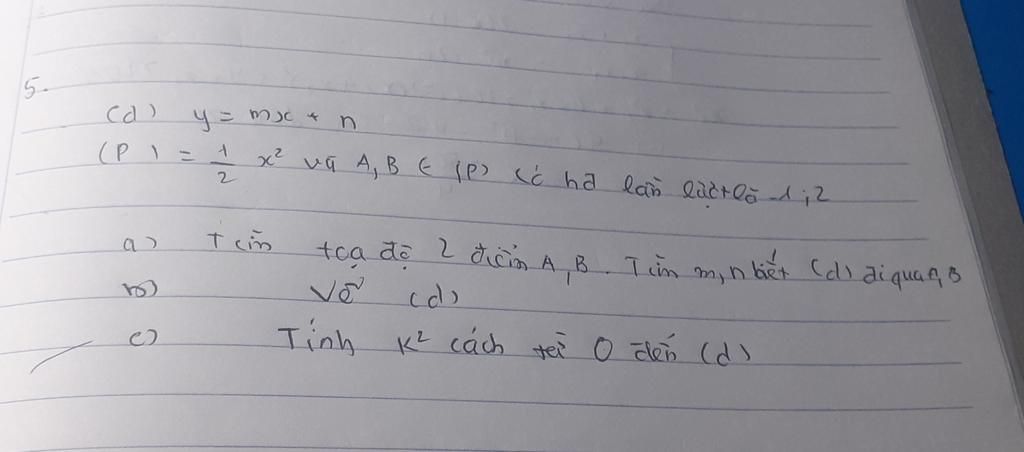 5.
(d) y = mx + n
(P) = 1/2 x² và A, B ∈ (P) có hđ lần lượt là -1; 2
a) Tìm tọa độ 2 điểm A, B. Tìm m, n biết (d) đi qua A, B
b) Vẽ (d)
c) Tính K² cách từ O đến (d)